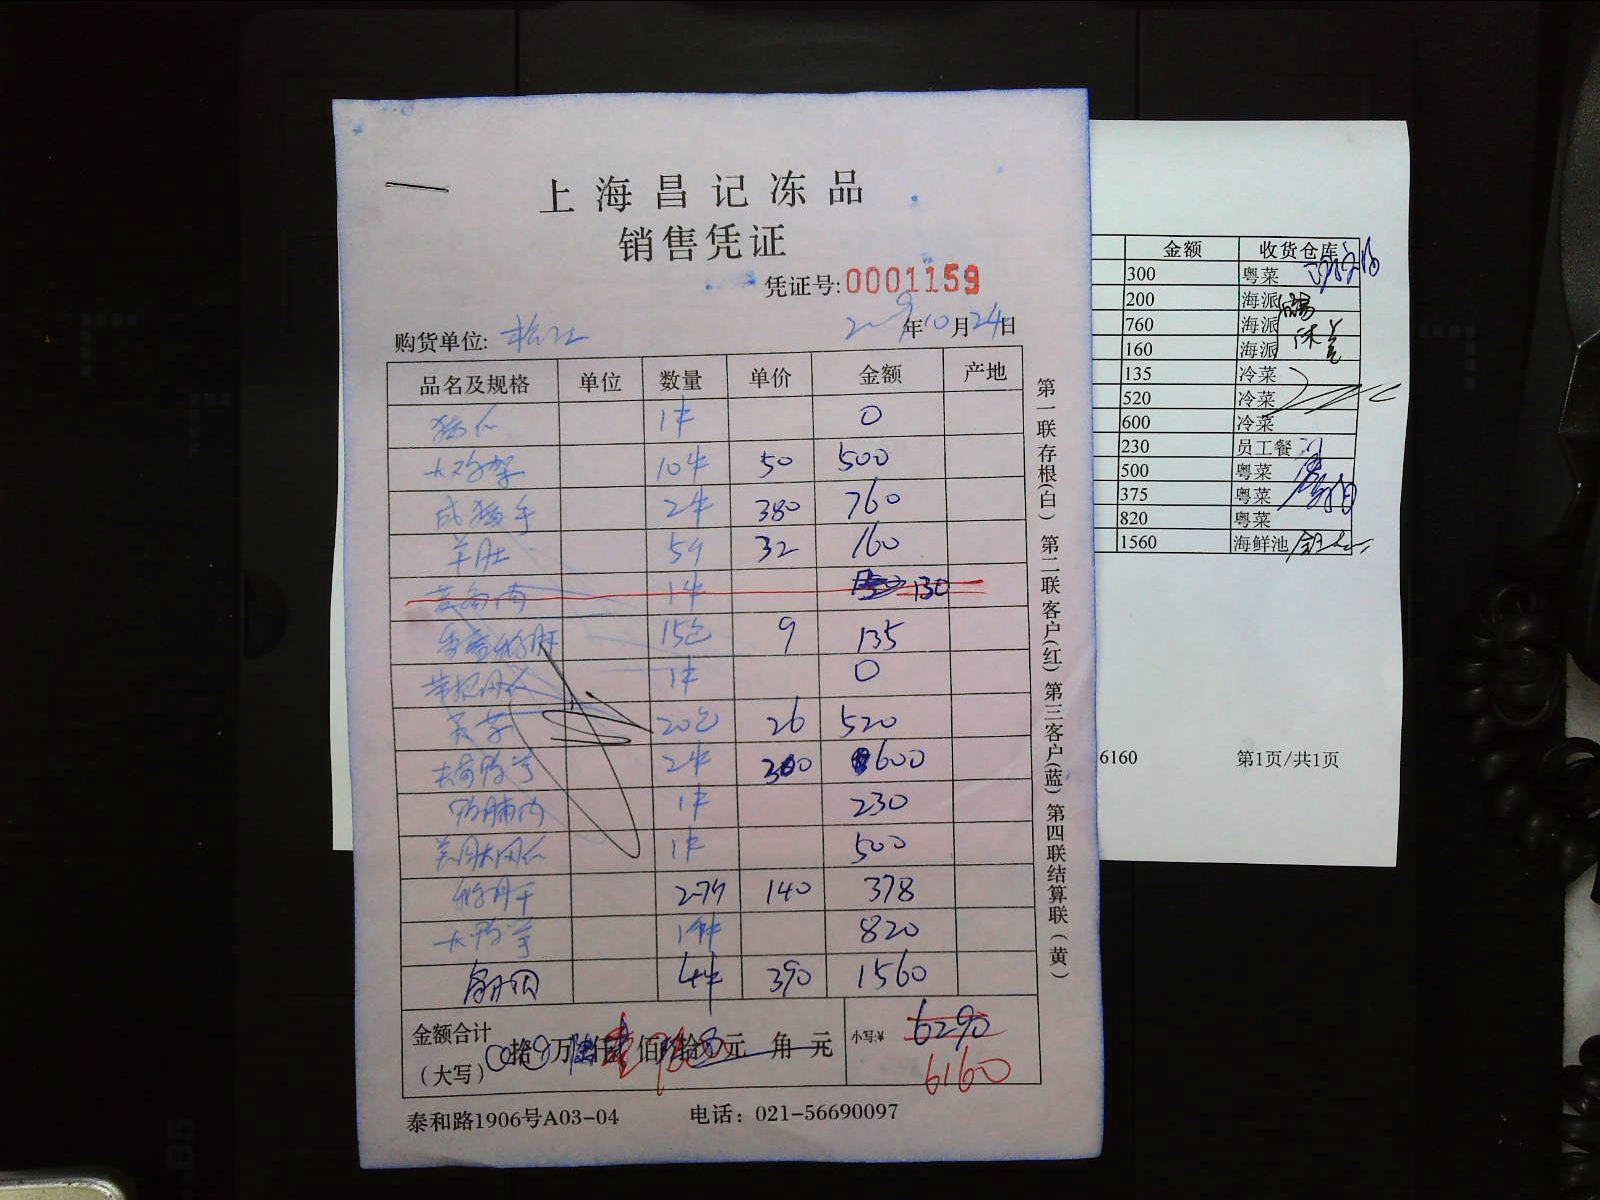 上海昌记冻品
销售凭证
凭证号:0001159
年10月24日
购货单位: 松江
品名及规格 单位 数量 单价 金额 产地
1件 0
大鸡架 10件 50 500
成猪手 2件 380 760
羊肚 5斤 32 160
1件 130
15包 9 135
1件 0
20包 26 520
2件 300 600
1件 230
1件 500
2.7斤 140 378
1件 820
4件 390 1560
金额合计
(大写) 拾 万 仟 佰 拾 元 角 元
小写:¥ 6290
6160
泰和路1906号A03-04 电话：021-56690097
第一联存根(白) 第二联客户(红) 第三客户(蓝) 第四联结算联(黄)
金额 收货仓库
300 粤菜
200 海派
760 海派
160 海派
135 冷菜
520 冷菜
600 冷菜
230 员工餐
500 粤菜
375 粤菜
820 粤菜
1560 海鲜池
6160 第1页/共1页